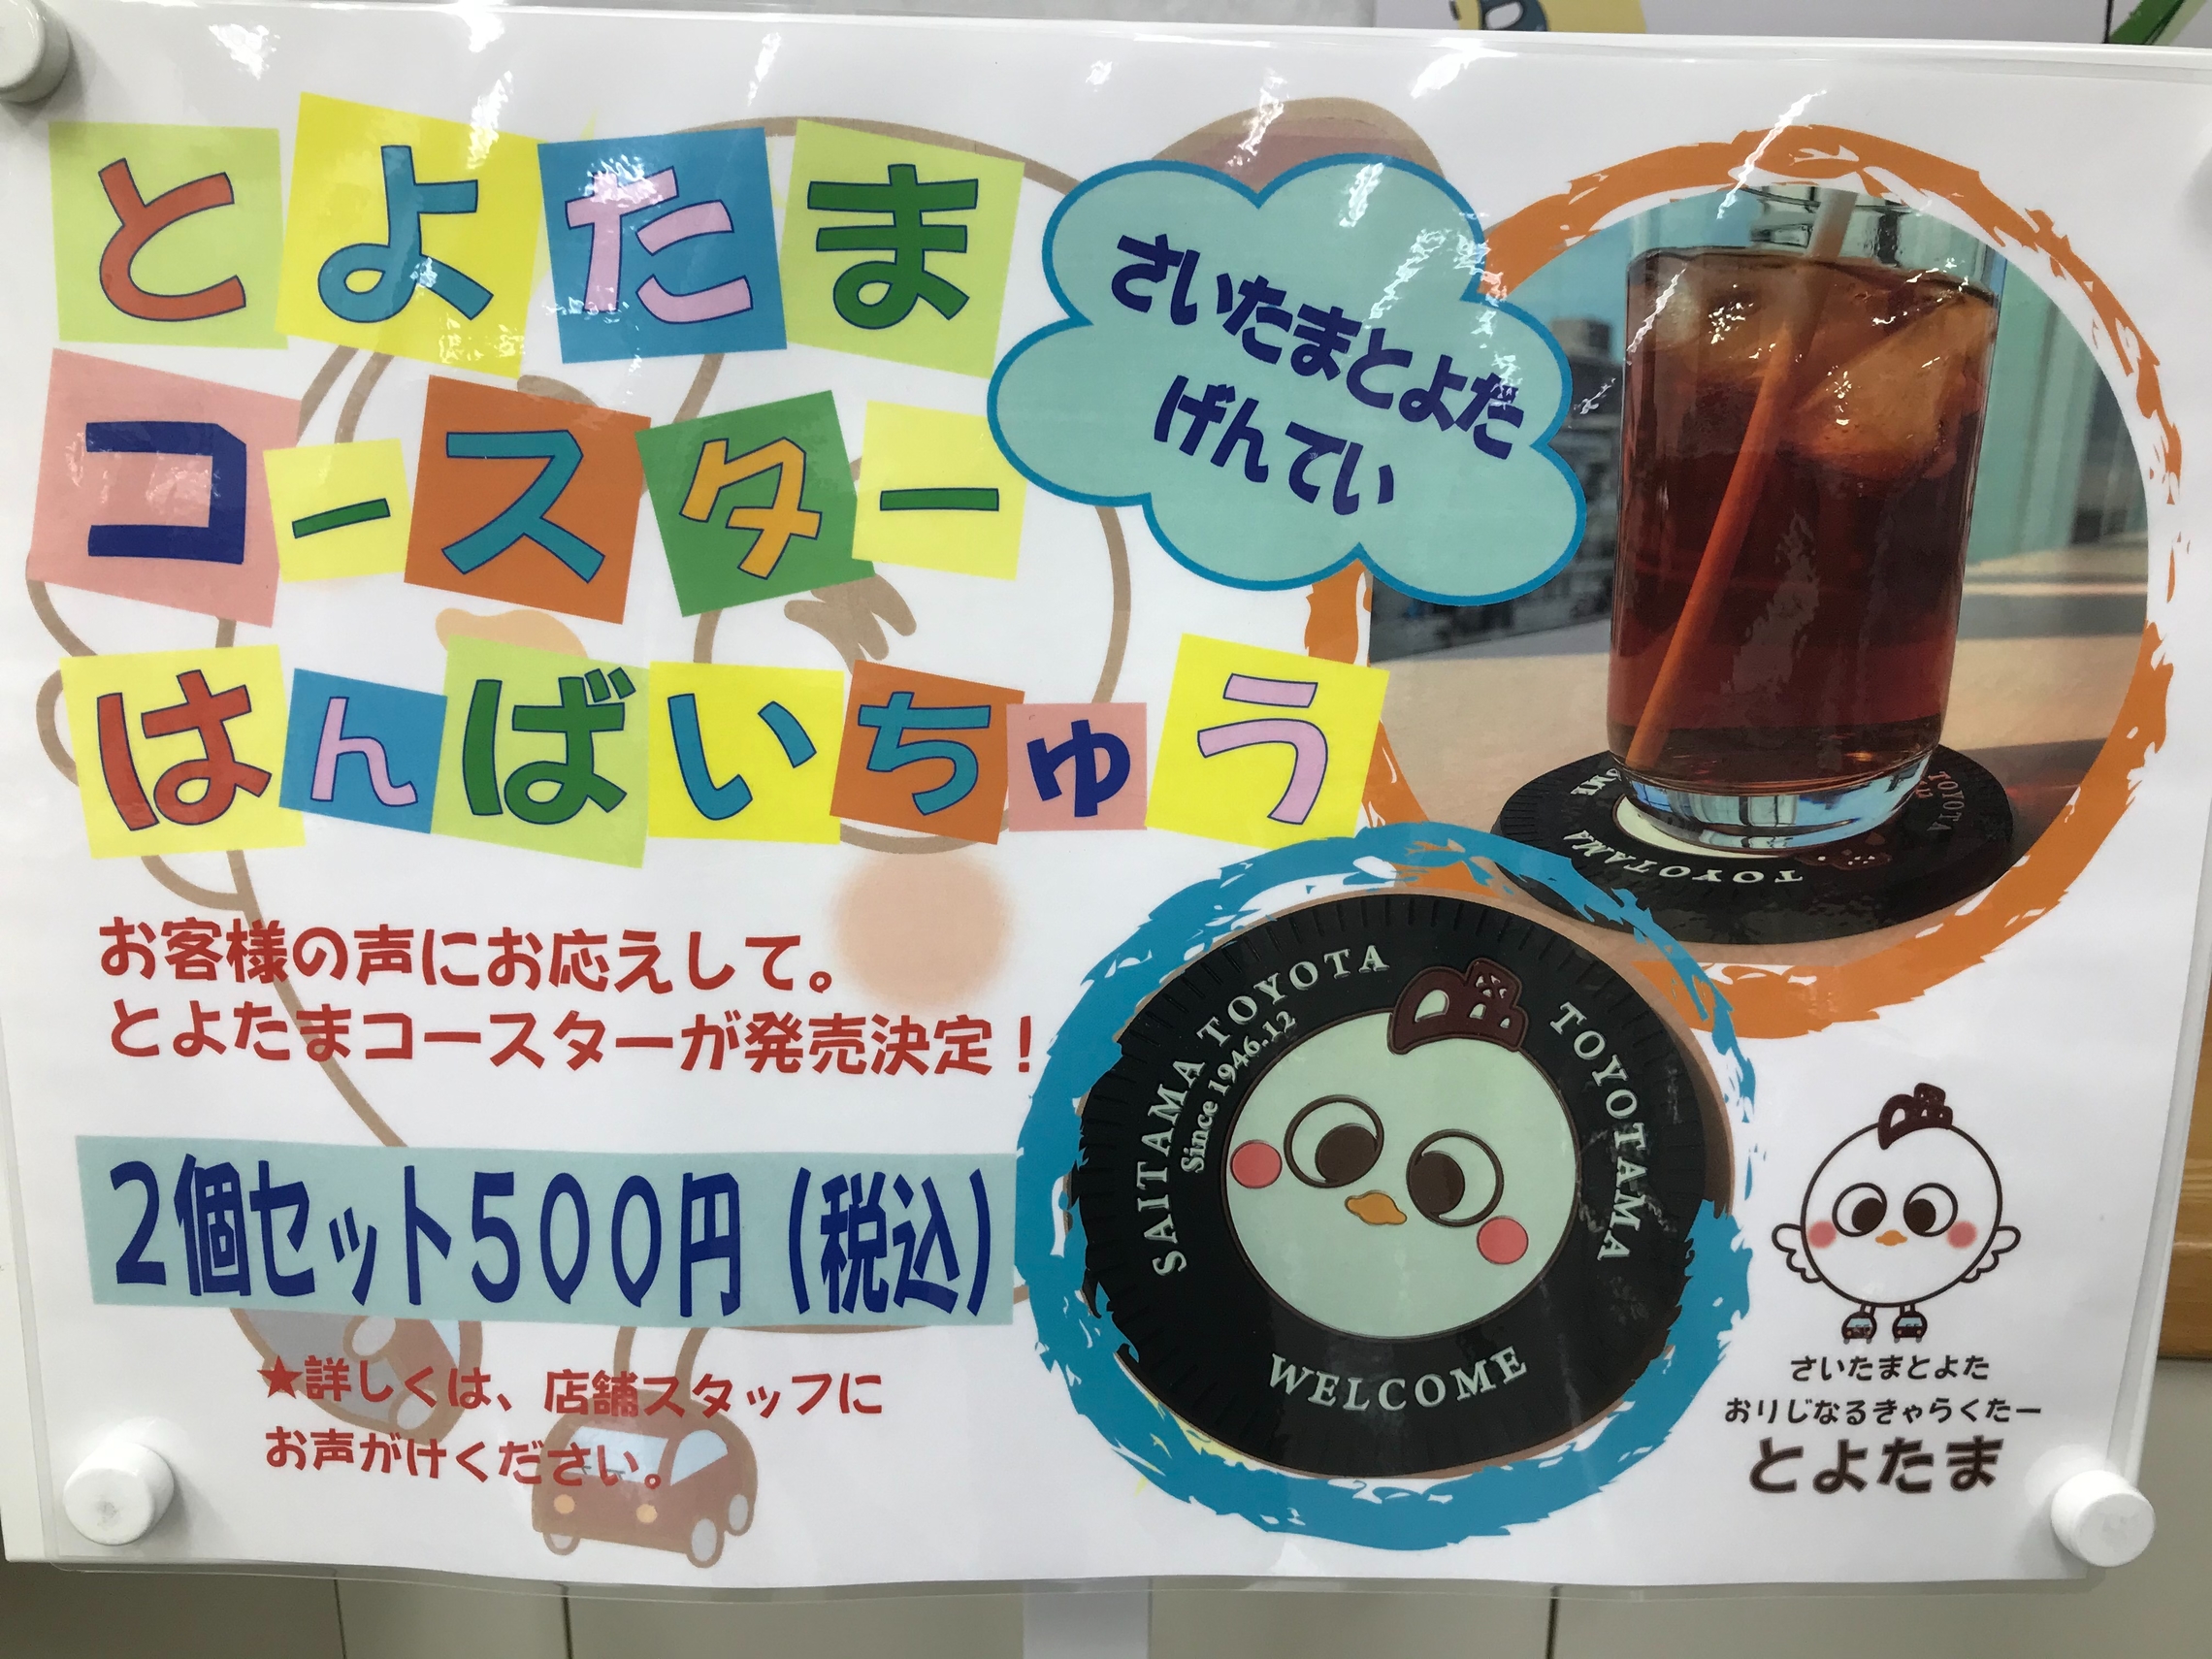 とよたま
コースター
はんばいちゅう
さいたまとよた
げんてい
お客様の声にお応えして。
とよたまコースターが発売決定！
2個セット500円（税込）
★詳しくは、店舗スタッフに
お声がけください。
TOYOTA
TOYOTAMA
SAITAMA TOYOTA
Since 1946.12
TOYOTAMA
WELCOME
さいたまとよた
おりじなるきゃらくたー
とよたま